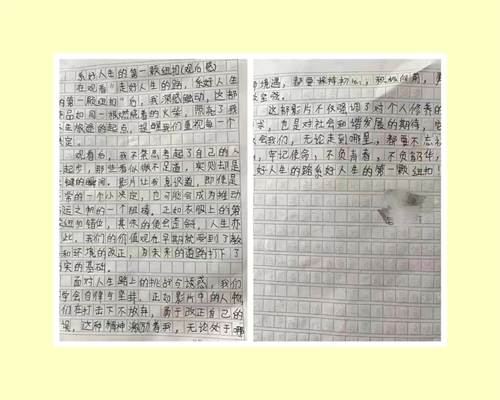 系好人生的第一颗纽扣(观后感)
在观看"走好人生的路，系好人生
的第一颗纽扣"后，我深感触动，这部
作品如同一根燃烧着的火柴，照亮了我
人生旅途的起点，提醒我们重视每一个
决定。
观看后，我不禁思考起了自己的人
起步，那些看似微不足道，实则却是
键的瞬间。影片让我意识到，即使是
常的一个小决定，也可能会成为推动
运之轮的一个细节。正如衣服上的第
纽扣错位，其余的便会歪斜，人生亦
此。我们的价值观在早期就受到了教
和环境的改正，为未来的道路打下了
实的基础。
面对人生路上的挑战与诱惑，我们
学会自律与坚持。正如影片中的人物
们在打击下不放弃，勇于改正自己的
误，这种精神激励着我，无论处于哪
境遇，都要保持初心，积极向前，勇
坚强。
这部影片不仅强调了对个人修养的
求，也是对社会和谐发展的期待，它
会我们，无论走到哪里，都要不忘初
，牢记使命，不负青春，不负韶华，
好人生的路系好人生的第一颗纽扣！